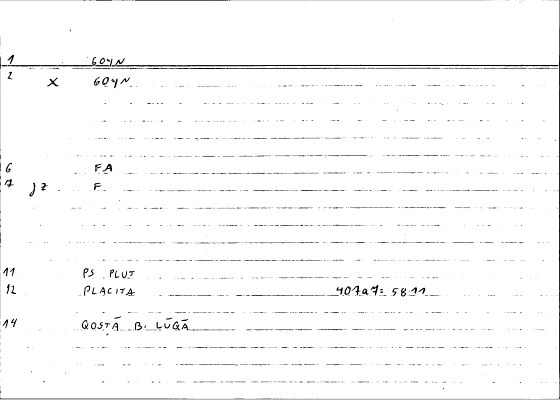 1 GOYN
2 X GOYN
6 FA
7 JZ F
11 PS PLUT
12 PLACITA 407a7= 58.11
14 QOSṬĀ B. LŪQĀ